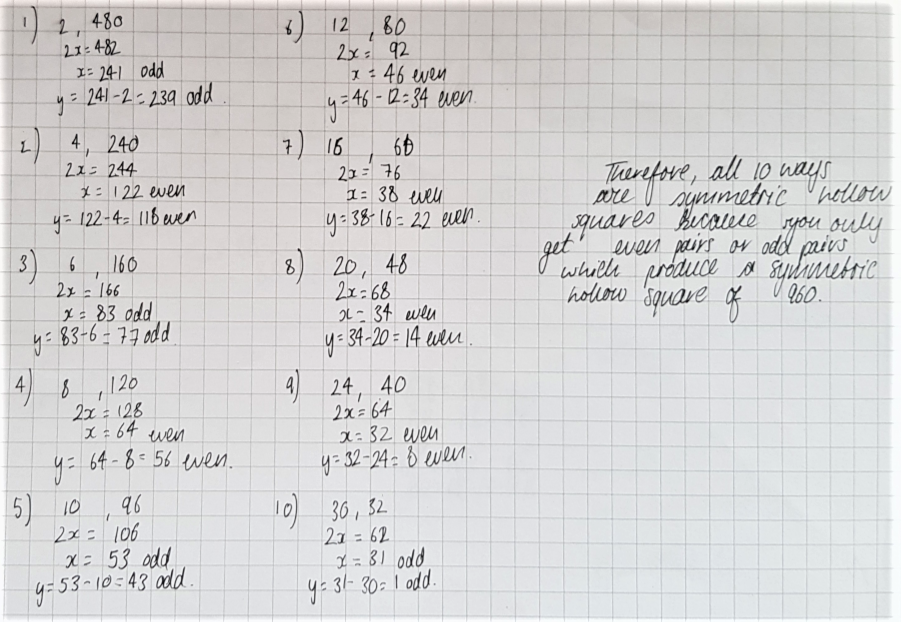 1) 2, 480
2x = 482
x = 241 odd
y = 241 - 2 = 239 odd.
2) 4, 240
2x = 244
x = 122 even
y = 122 - 4 = 118 even
3) 6, 160
2x = 166
x = 83 odd
y = 83 - 6 = 77 odd.
4) 8, 120
2x = 128
x = 64 even
y = 64 - 8 = 56 even.
5) 10, 96
2x = 106
x = 53 odd
y = 53 - 10 = 43 odd.
6) 12, 80
2x = 92
x = 46 even
y = 46 - 12 = 34 even.
7) 16, 60
2x = 76
x = 38 even
y = 38 - 16 = 22 even.
8) 20, 48
2x = 68
x = 34 even
y = 34 - 20 = 14 even.
9) 24, 40
2x = 64
x = 32 even
y = 32 - 24 = 8 even.
10) 30, 32
2x = 62
x = 31 odd
y = 31 - 30 = 1 odd.
Therefore, all 10 ways
are symmetric hollow
squares because you only
get even pairs or odd pairs
which produce a symmetric
hollow square of 960.